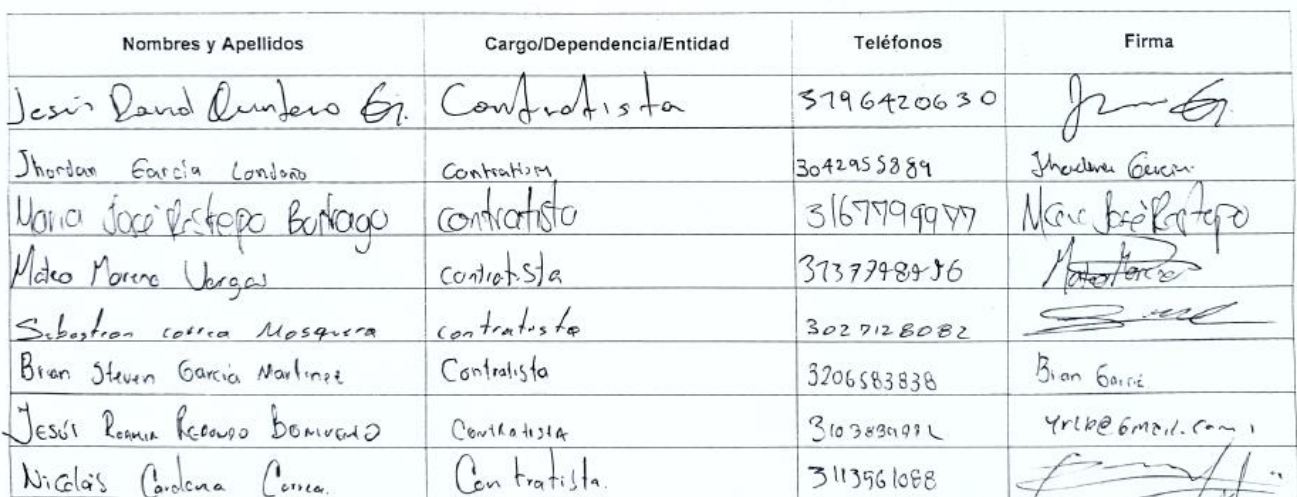 Nombres y Apellidos Cargo/Dependencia/Entidad Teléfonos Firma
Jesús David Quintero G. Contratista 3196420630
Jhordan García Londoño Contratista 3042955889 Jhordan García
Maria José Restepo Buitrago contratista 3167799977 Maria José Restepo
Mateo Moreno Vargas contratista Mateo
Sebastian correa Mosquera contratista 3027128082
Brian Steven García Martinez Contratista 3206583838 Brian García
Jesús Redondo Contratista
Nicolás Cardona Correa. Contratista. 3113561088